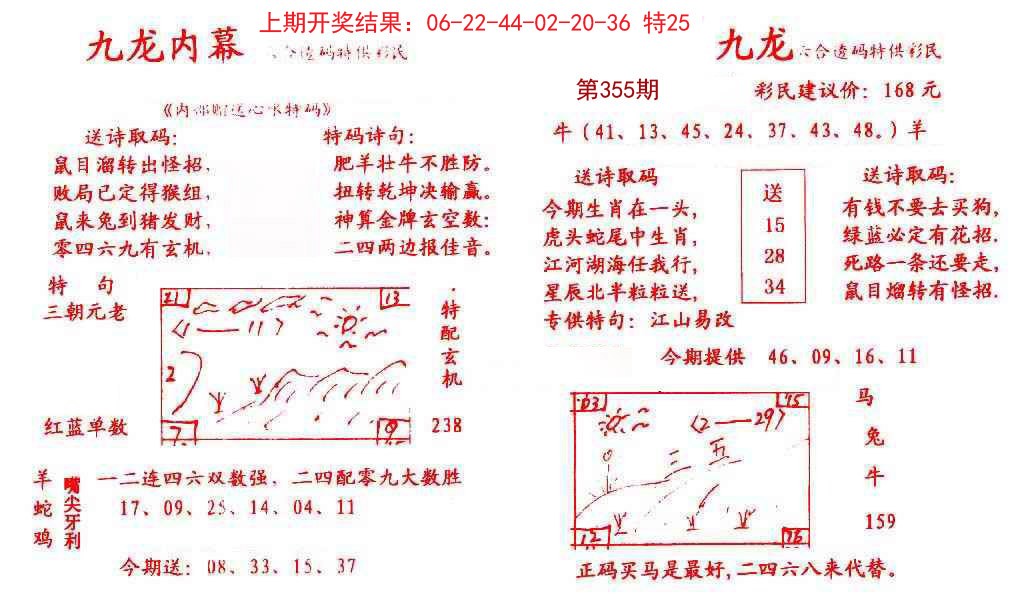 上期开奖结果：06-22-44-02-20-36 特25
九龙内幕
六合透码特供彩民
《内部赠送心水特码》
送诗取码：
鼠目溜转出怪招，
败局已定得猴组，
鼠来兔到猪发财，
零四六九有玄机，
特码诗句：
肥羊壮牛不胜防。
扭转乾坤决输赢。
神算金牌玄空数：
二四两边报佳音。
特 句
三朝元老
红蓝单数
21
13
〈1——11〉
2
7
9
特配玄机
238
羊蛇鸡
嘴尖牙利
一二连四六双数强，二四配零九大数胜
17、09、25、14、04、11
今期送：08、33、15、37
九龙
六合透码特供彩民
第355期
彩民建议价：168元
牛（41、13、45、24、37、43、48。）羊
送诗取码
今期生肖在一头，
虎头蛇尾中生肖，
江河湖海任我行，
星辰北半粒粒送，
专供特句：江山易改
送
15
28
34
送诗取码：
有钱不要去买狗，
绿蓝必定有花招.
死路一条还要走，
鼠目熘转有怪招.
今期提供 46、09、16、11
03
15
〈2——29〉
三 五
12
76
马
兔
牛
159
正码买马是最好,二四六八来代替。